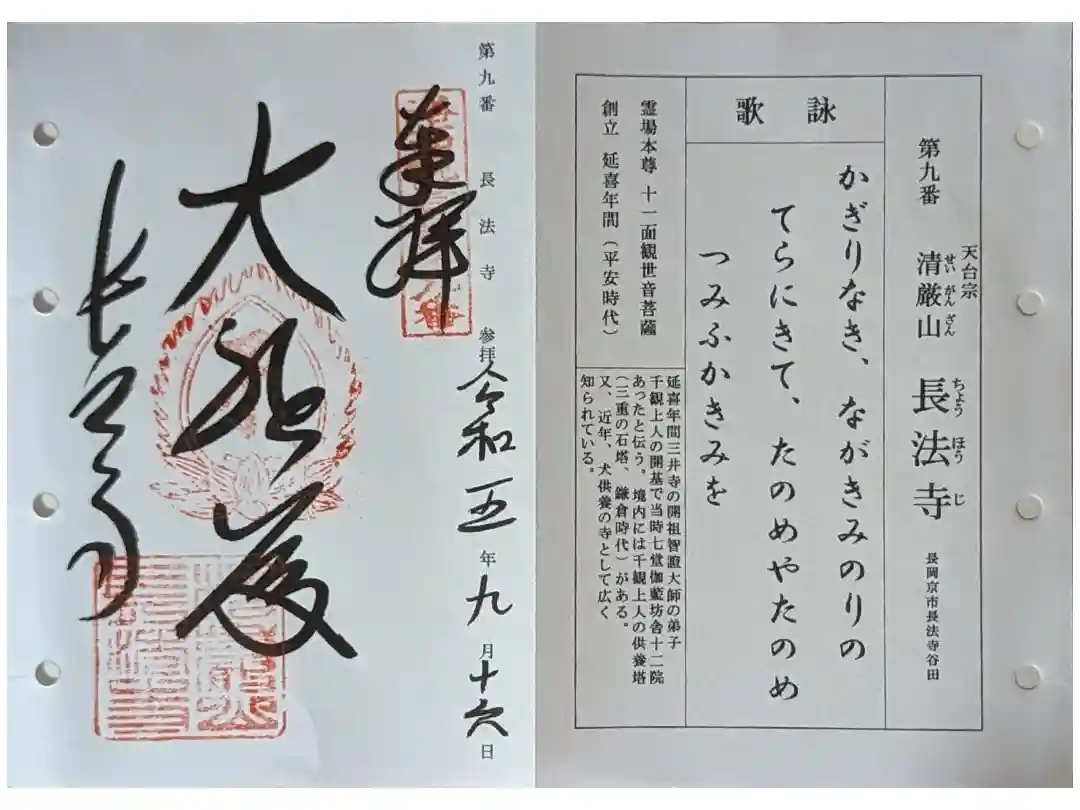 第九番 長法寺 参拝 令和五年九月十六日
奉拝
大悲殿
長法寺
第九番 天台宗 清厳山 長法寺 長岡京市長法寺谷田
せいがんざん ちょうほうじ
詠歌
かぎりなき、ながきみのりの
てらにきて、たのめやたのめ
つみふかきみを
霊場本尊 十一面観世音菩薩
創立 延喜年間(平安時代)
延喜年間三井寺の開祖智證大師の弟子
千観上人の開基で当時七堂伽藍坊舎十二院
あったと伝う。境内には千観上人の供養塔
(三重の石塔、鎌倉時代)がある。
又、近年、犬供養の寺として広く
知られている。